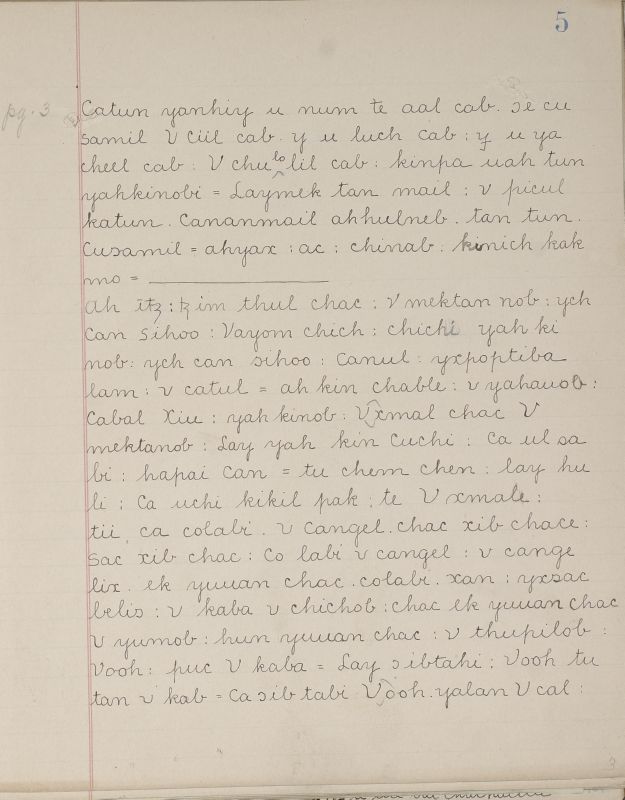 5
pg. 3
Catun yanhiy u num te aal cab. ɔe cu
samil V ciil cab. y u luch cab : y u ya
cheel cab : V chu lo lil cab : kinpa uah tun
yahkinobi = Laymek tan mail : v picul
katun. Cananmail ahhulneb. tan tun.
Cusamil = ahyax : ac : chinab : kinich kak
mo =
Ah itz : tz im thul chac : V mektan nob : ych
Can Sihoo : Vayom chich : chichi yah ki
nob : ych can sihoo : Canul : yxpoptiba
lam : v catul = ah kin chable : v yahauob :
Cabal Xiu : yah kinob : Vxmal chac V
mektanob : Lay yah kin Cuchi : Ca ul sa
bi : hapai Can = tu chem chen : lay hu
li : Ca uchi kikil pak : te V xmale :
tii ca colabi. V Cangel. chac xib chace :
Sac xib chac : Co labi v cangel : v cange
lix. ek yuuan chac. colabi. xan : yxsac
belis : v kaba v chichob : chac ek yuuan chac
V yumob : hun yuuan chac : v thupilob :
Vooh : puc V kaba = Lay sibtahi : Vooh tu
tan v kab = Ca sib tabi Vooh. yalan V cal :
3